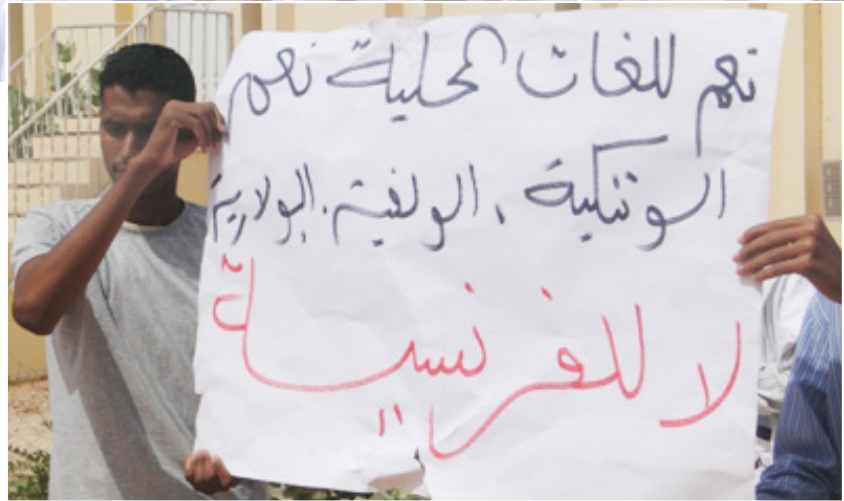 نعم للغات المحلية نعم
السوننكية، الولفية، البولارية
لا للفرنسية